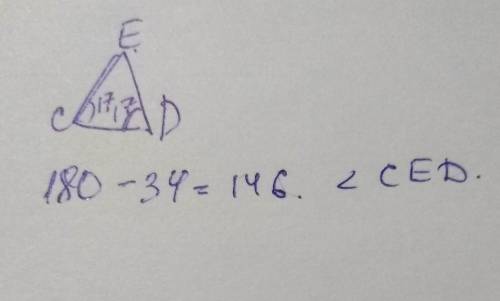 E
C 17 17 D
180 - 34 = 146. < CED.